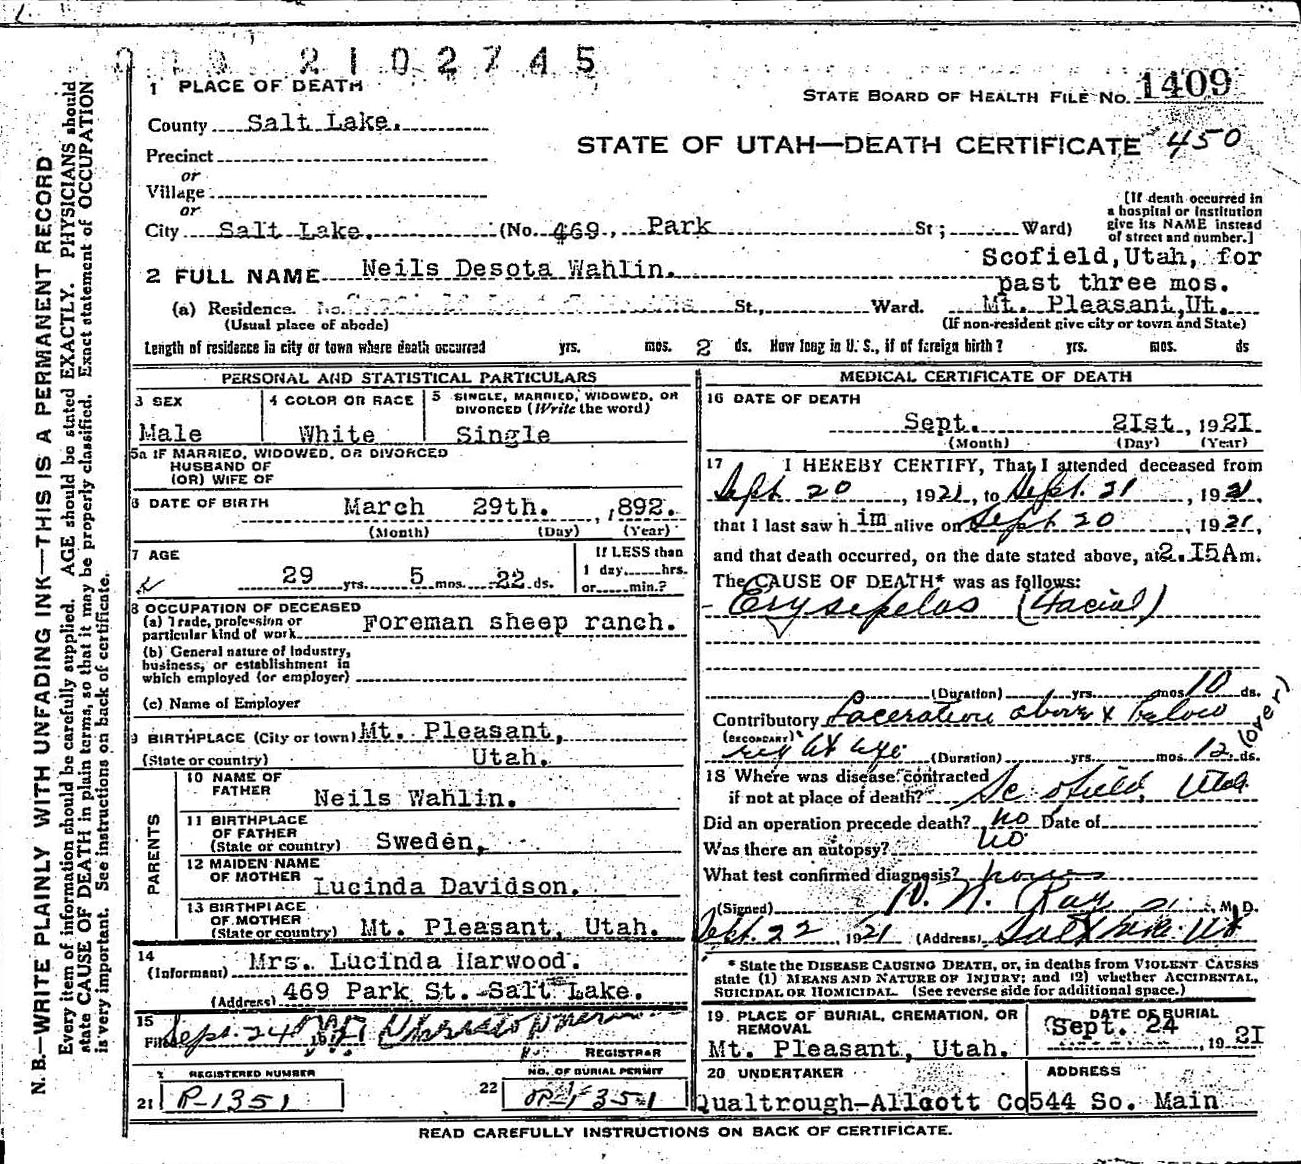 2102745
1 PLACE OF DEATH
STATE BOARD OF HEALTH FILE NO. 1409
County Salt Lake.
STATE OF UTAH—DEATH CERTIFICATE 450
Precinct
or
Village
or
[If death occurred in
a hospital or institution
give its NAME instead
of street and number.]
City Salt Lake. (No. 469, Park St; Ward)
Scofield, Utah, for
past three mos.
2 FULL NAME Neils Desota Wahlin.
(a) Residence. No. St., Ward. Mt. Pleasant, Ut.
(Usual place of abode) (If non-resident give city or town and State)
Length of residence in city or town where death occurred yrs. mos. 2 ds. How long in U. S., if of foreign birth? yrs. mos. ds
PERSONAL AND STATISTICAL PARTICULARS
3 SEX
Male
4 COLOR OR RACE
White
5 SINGLE, MARRIED, WIDOWED, OR
DIVORCED (Write the word)
Single
5a IF MARRIED, WIDOWED, OR DIVORCED
HUSBAND OF
(OR) WIFE OF
6 DATE OF BIRTH March 29th. , 1892.
(Month) (Day) (Year)
7 AGE
29 yrs. 5 mos. 22 ds.
If LESS than
1 day, hrs.
or min.?
8 OCCUPATION OF DECEASED
(a) Trade, profession or
particular kind of work Foreman sheep ranch.
(b) General nature of Industry,
business, or establishment in
which employed (or employer)
(c) Name of Employer
9 BIRTHPLACE (City or town) Mt. Pleasant,
(State or country) Utah.
PARENTS
10 NAME OF
FATHER Neils Wahlin.
11 BIRTHPLACE
OF FATHER
(State or country) Sweden,
12 MAIDEN NAME
OF MOTHER Lucinda Davidson.
13 BIRTHPLACE
OF MOTHER
(State or country) Mt. Pleasant, Utah.
14
(Informant) Mrs. Lucinda Harwood.
(Address) 469 Park St. Salt Lake.
15
Filed Sept. 24
REGISTRAR
REGISTERED NUMBER
21 P-1351
NO. OF BURIAL PERMIT
22 P-1351
MEDICAL CERTIFICATE OF DEATH
16 DATE OF DEATH
Sept. 21st , 1921
(Month) (Day) (Year)
17 I HEREBY CERTIFY, That I attended deceased from
Sept 20 , 1921, to Sept. 21 , 1921,
that I last saw h im alive on Sept 20 , 1921,
and that death occurred, on the date stated above, at 2.15A m.
The CAUSE OF DEATH* was as follows:
Erysipelas (Facial)
(Duration) yrs. mos. 10 ds.
Contributory Laceration above & below
(SECONDARY) eye (Duration) yrs. mos. 12 ds.
(over)
18 Where was disease contracted
if not at place of death? Scofield, Utah
Did an operation precede death? no Date of
Was there an autopsy? no
What test confirmed diagnosis?
(Signed) M. D.
Sept. 22 , 1921 (Address) Salt Lake Ut
* State the DISEASE CAUSING DEATH, or, in deaths from VIOLENT CAUSES
state (1) MEANS AND NATURE OF INJURY; and (2) whether ACCIDENTAL,
SUICIDAL OR HOMICIDAL. (See reverse side for additional space.)
19. PLACE OF BURIAL, CREMATION, OR
REMOVAL
Mt. Pleasant, Utah.
DATE OF BURIAL
Sept. 24 , 1921
20 UNDERTAKER
Qualtrough-Allcott Co
ADDRESS
544 So. Main
READ CAREFULLY INSTRUCTIONS ON BACK OF CERTIFICATE.
N. B.—WRITE PLAINLY WITH UNFADING INK—THIS IS A PERMANENT RECORD
Every item of information should be carefully supplied. AGE should be stated EXACTLY. PHYSICIANS should
state CAUSE OF DEATH in plain terms, so that it may be properly classified. Exact statement of OCCUPATION
is very important. See instructions on back of certificate.